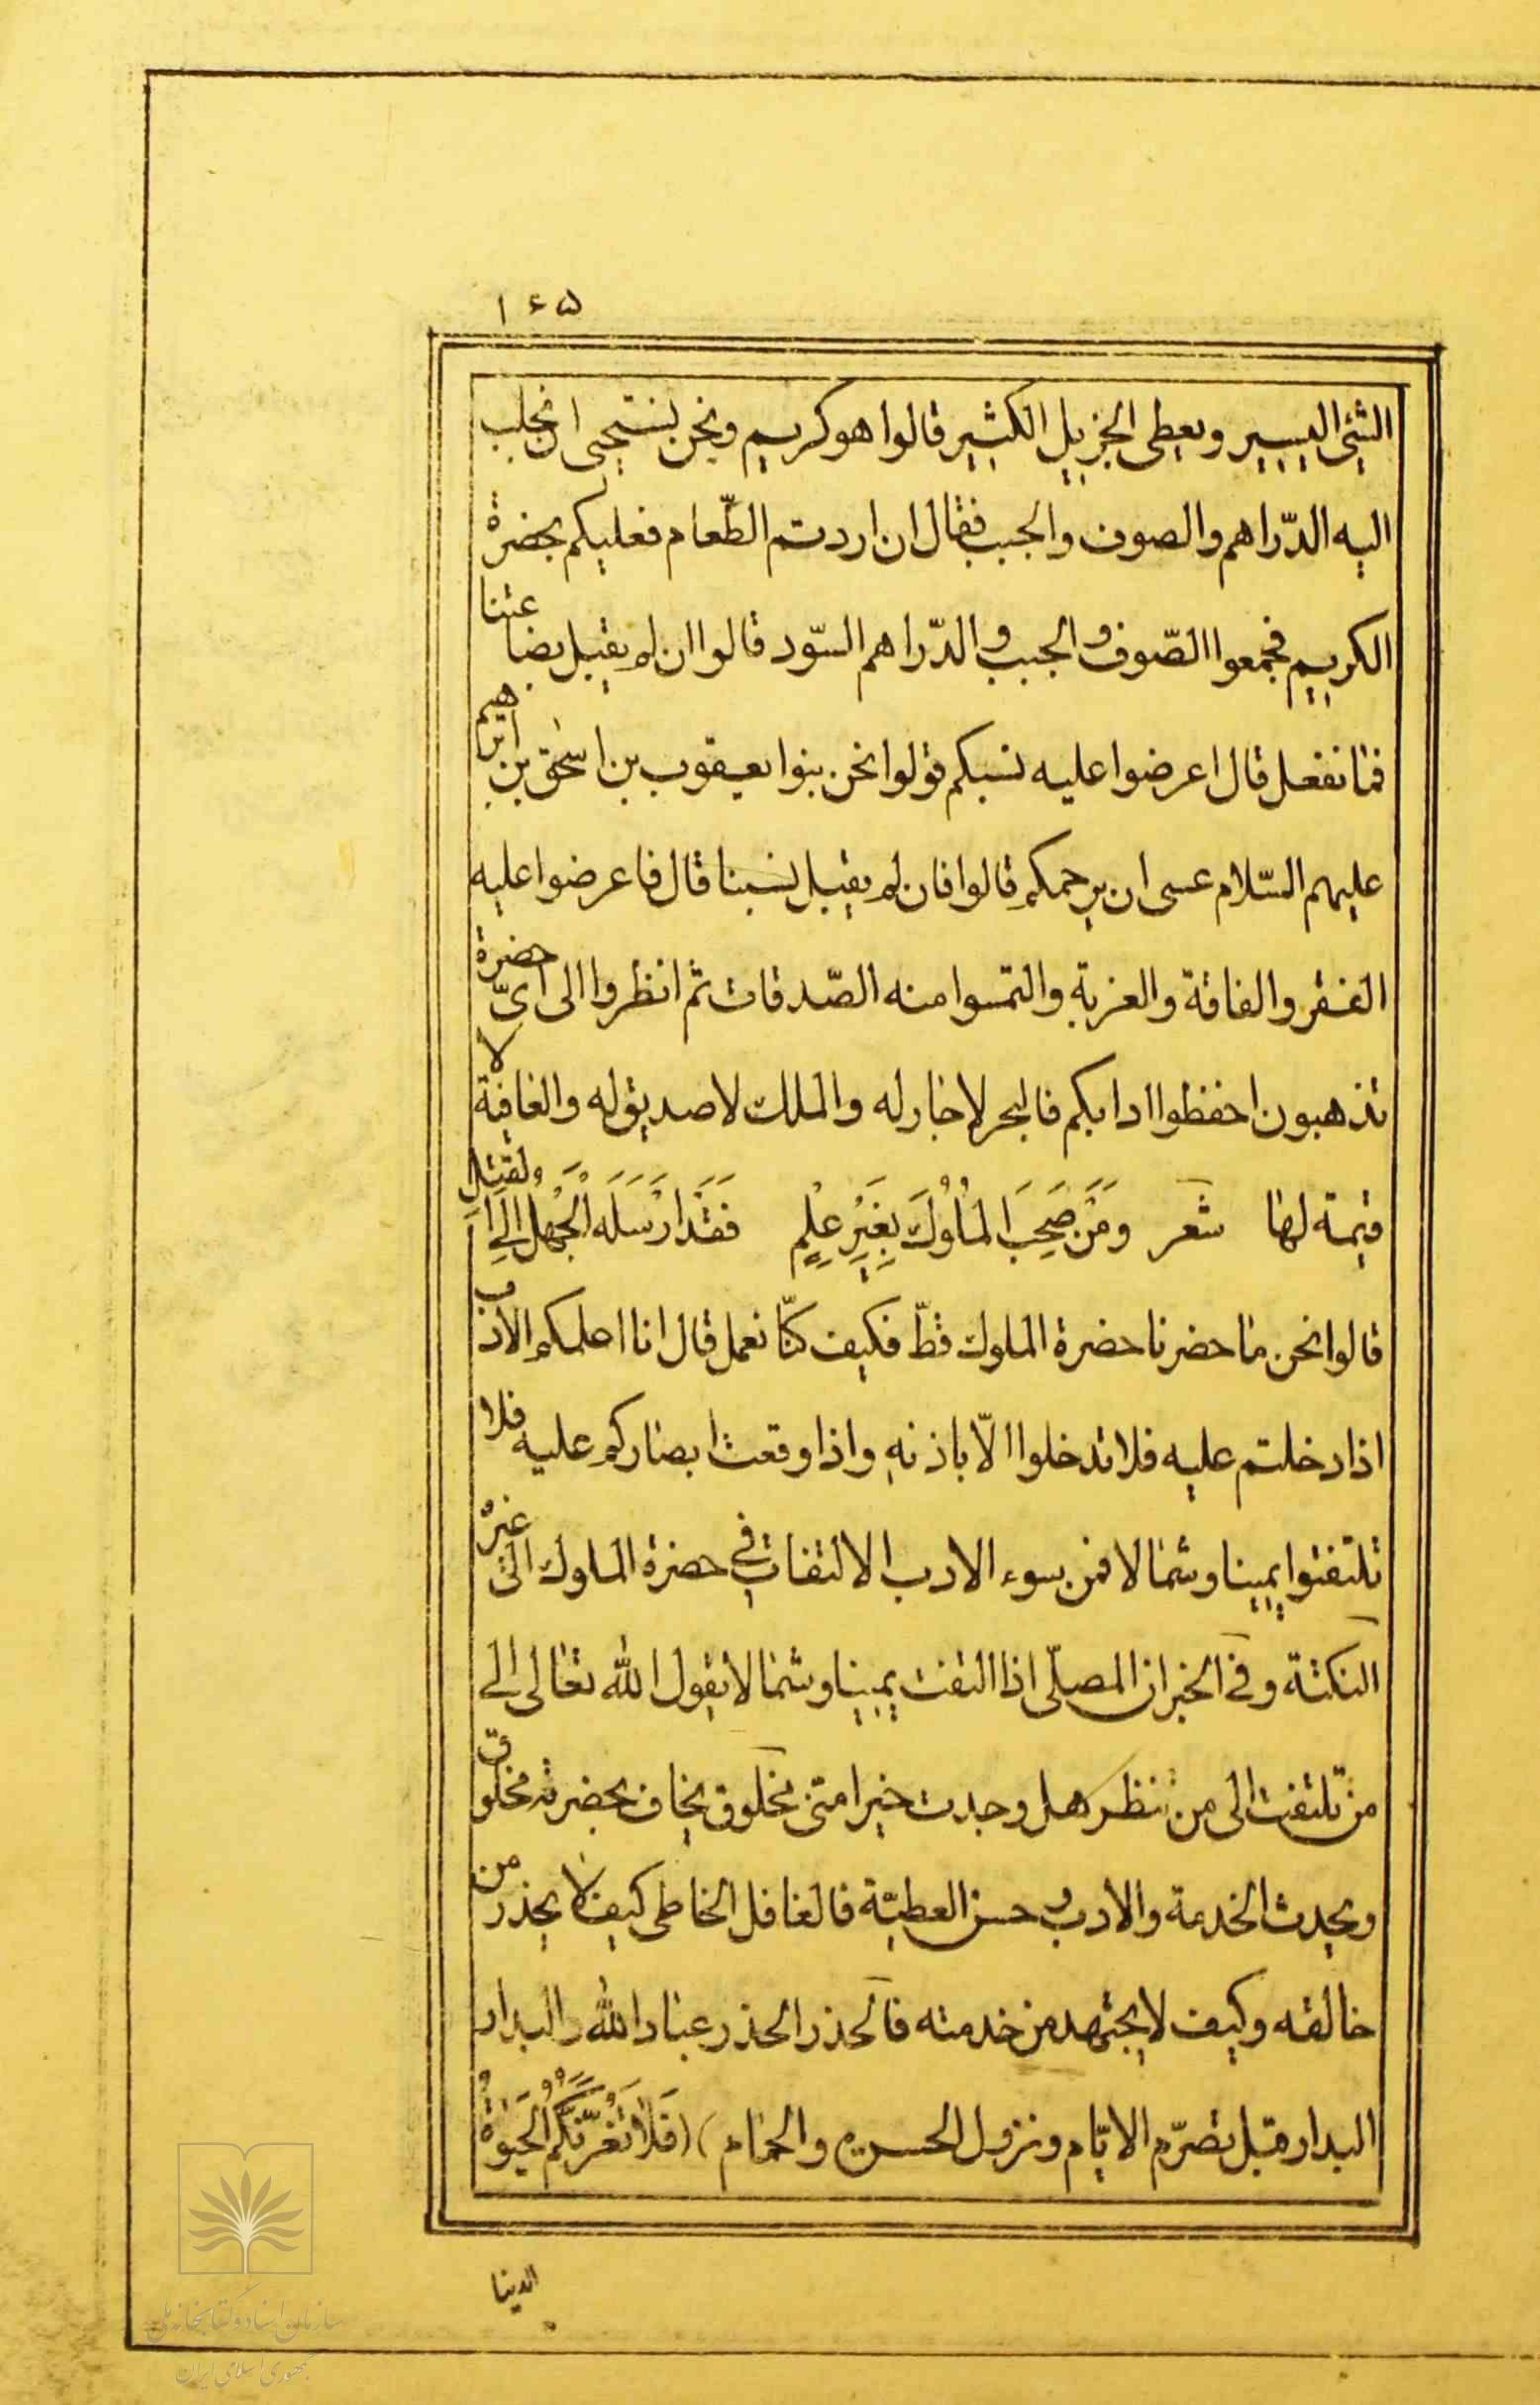 ١٦٥
الشئ اليسير ويعطى الجزيل الكثير قالوا هو كريم ونحن نستحيى ان نجلب
اليه الدّراهم والصوف والجبب فقال ان اردتم الطّعام فعليكم بحضرة
الكريم فجمعوا الصّوف والجبب والدّراهم السّود قالوا ان لم يقبل بضاعتنا
فما نفعل قال اعرضوا عليه نسبكم قولوا نحن بنوا يعقوب بن اسحق بن ابرهيم
عليهم السّلام عسى ان يرحمكم قالوا فان لم يقبل نسبنا قال فاعرضوا عليه
الفقر والفاقة والغربة والتمسوا منه الصّدقات ثم انظروا الى اىّ حضرة
تذهبون احفظوا ادابكم فالبحر لا جار له والملك لا صديق له والعافية لا
قيمة لها شعر وَمَنْ صَحِبَ الْمُلُوكَ بِغَيْرِ عِلْمٍ فَقَدْ اَرْسَلَهُ الْجَهْلُ اِلَى الْقَتْلِ
قالوا نحن ما حضرنا حضرة الملوك قطّ فكيف كنّا نعمل قال انا اعلمكم الادب
اذا دخلتم عليه فلا تدخلوا الّا باذنه واذا وقعت ابصاركم عليه فلا
تلتفتوا يمينا وشمالا فمن سوء الادب الالتفات فى حضرة الملوك الى غيره
النكتة وفى الخبر ان المصلّى اذا التفت يمينا وشمالا يقول الله تعالى الى
من تلتفت الى من تنظر هل وجدت خيرا منى مخلوق يخاف بحضرته مخلوق
ويحدث الخدمة والادب وحسن العطيّة فالغافل الخاطى كيف لا يحذر من
خالقه وكيف لا يجتهد من خدمته فالحذر الحذر عباد الله والبدار
البدار قبل تصرّم الايّام ونزول الحسرة والحمام (فَلَا تَغُرَّنَّكُمُ الْحَيٰوةُ
الدنيا
سازمان اسناد و کتابخانه ملی
جمهوری اسلامی ایران